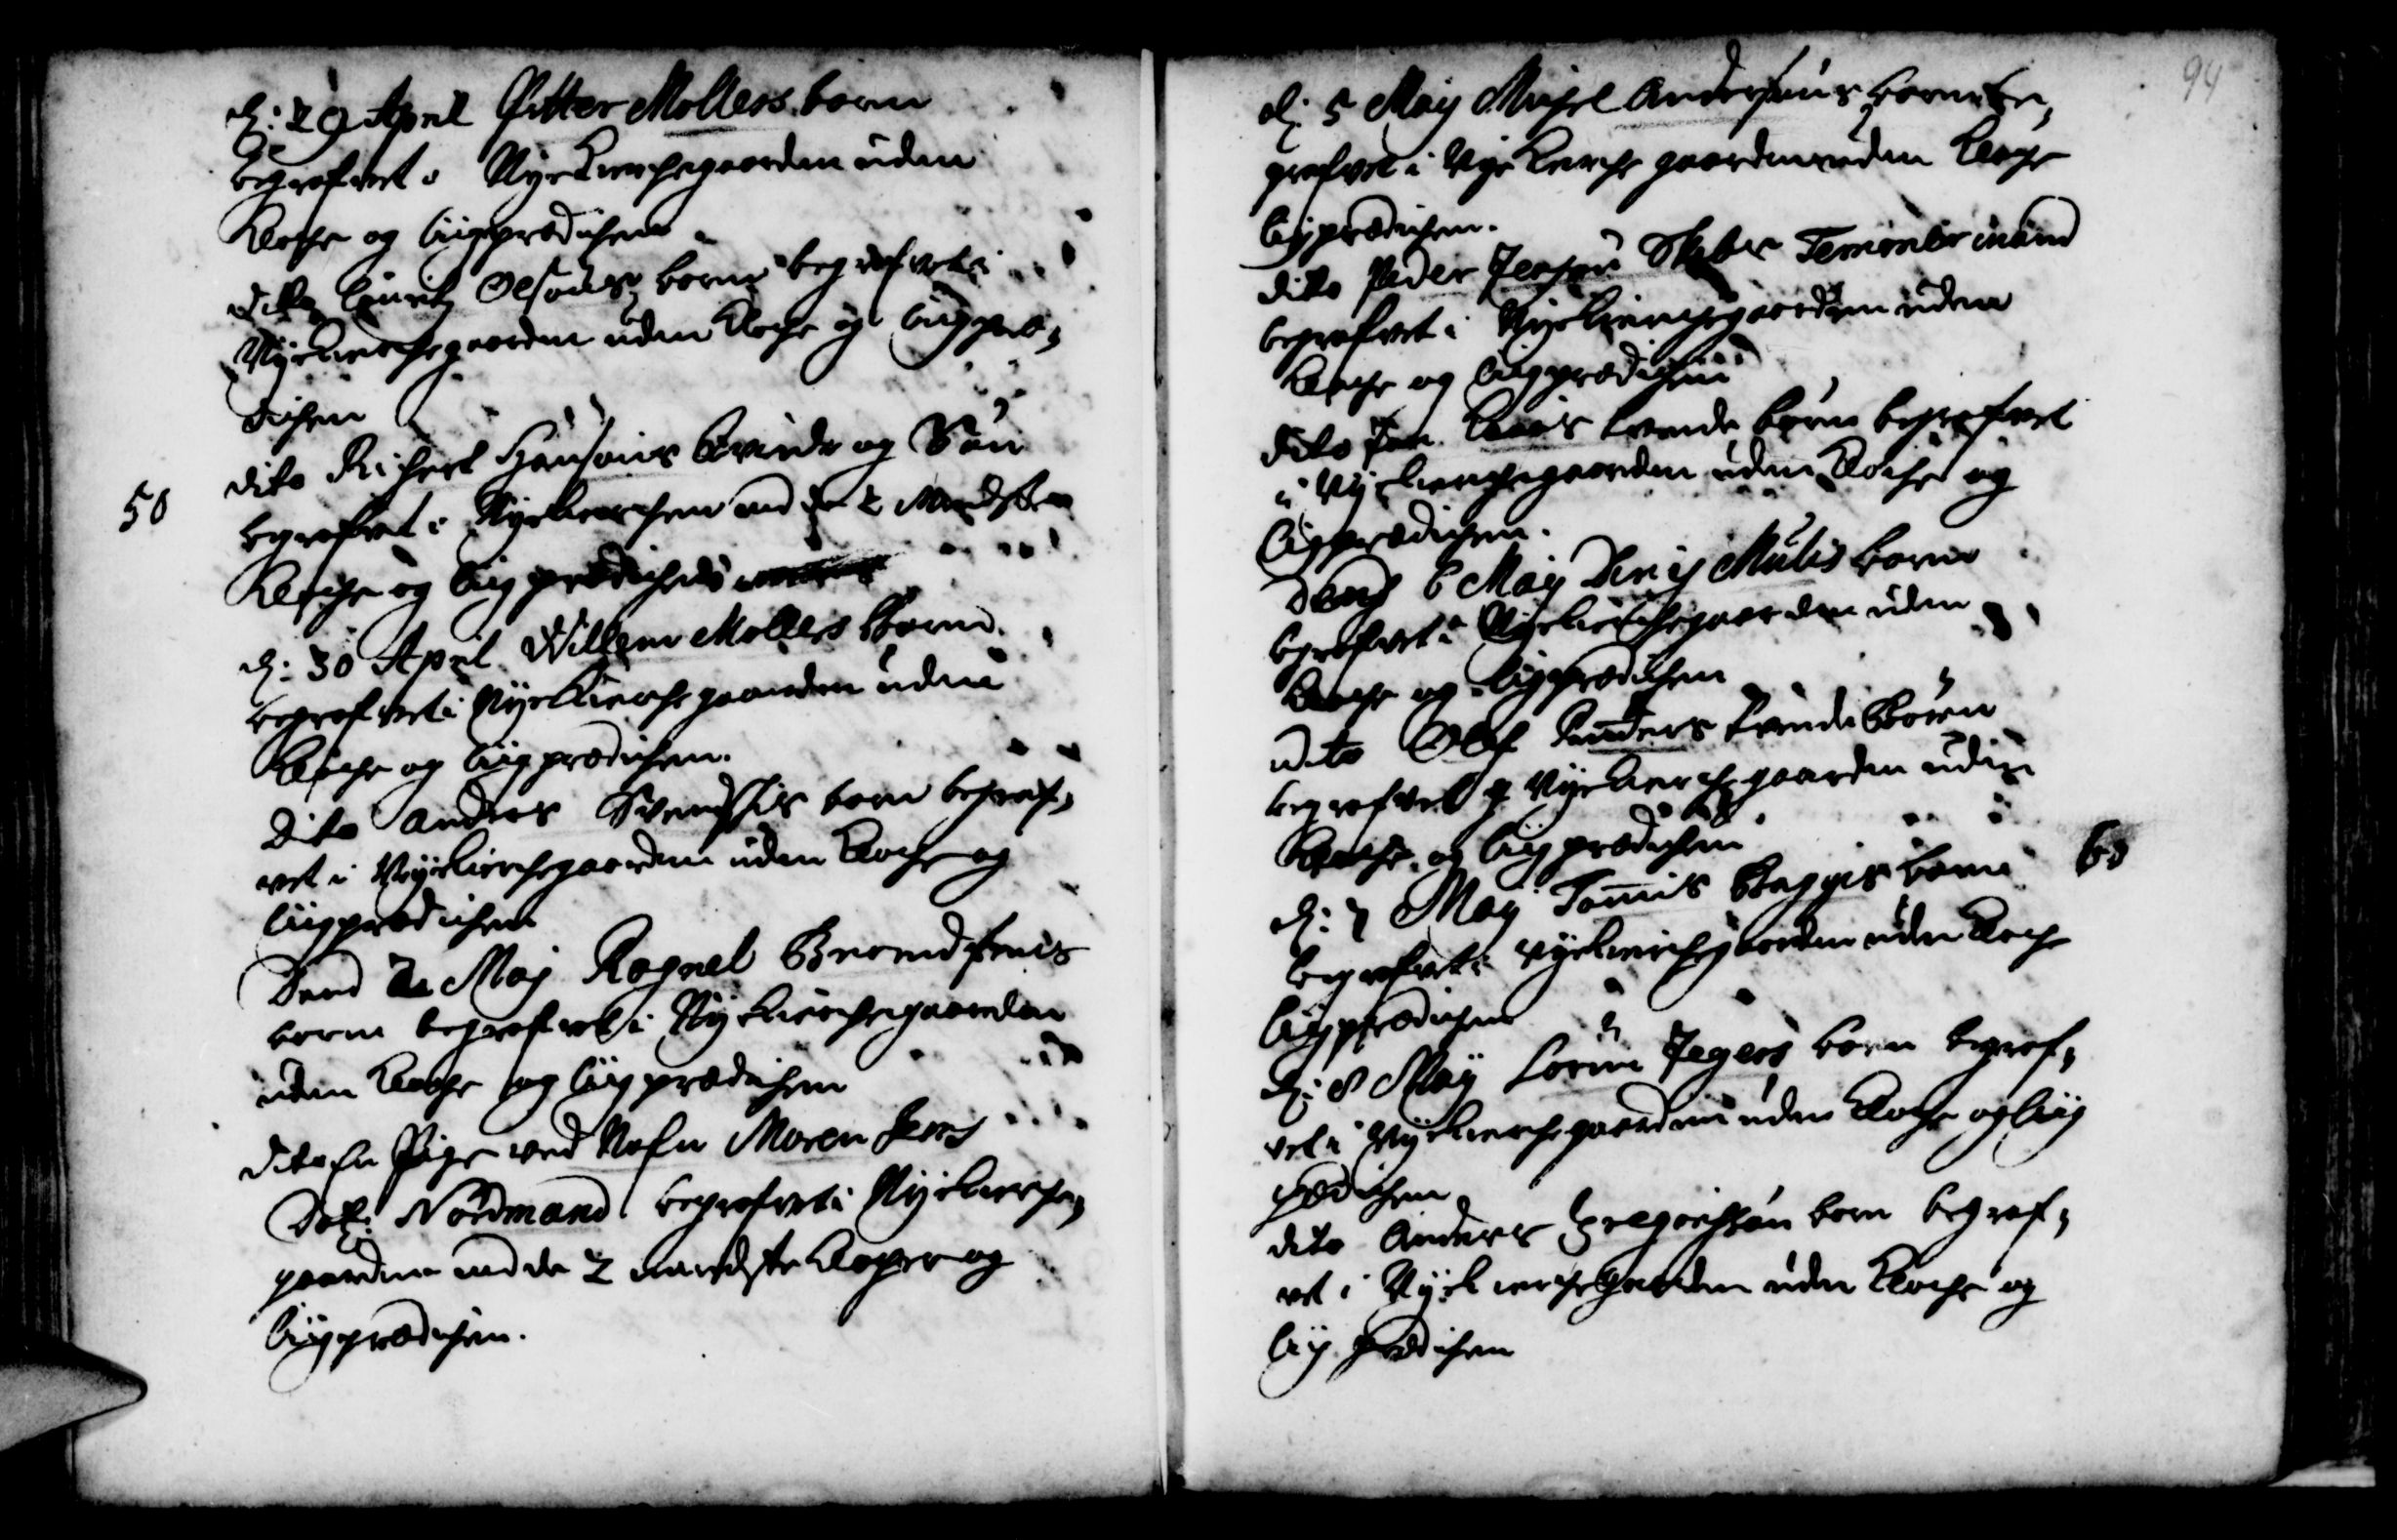 d: 29 April Pitter Mollers barn
begrafvet i Nye Kierchegaarden uden
Kloche og liigprædichen.
dito Lauritz Olsøns barn begrafvet i
Nye Kierchegaarden uden Kloche og liigpræ,
dichen
dito Richert Hansøns Qvinde og Søn
50
begrafvet i Nyekierchen med de 2 Mindste
Klocher og liigprædichen
d: 30 April Willem Mollers Barn
begrafvet i Nye Kierche gaarden uden
Kloche og liigprædichen.
Dito Anders barn begraf,
vet i Nyekierchegaarden uden Kloche og
liigprædichen
Dend 2 Maj Ragnel
barn begrafvet i Nyekierchegaarden
uden Kloche og liigprædichen
dito En Pige ved Nafn Maren Jens
Dot: Nordmand begrafvet i Nyekierche,
gaarden med de 2 mindste Klocher og
liigprædichen.
94
d: 5 Maij Michel Andersøns barn be,
grafvet i Nye Kierche gaarden uden Kloche
liigprædichen.
dito Peder Jensøn Skibs Temmermand
begrafvet i Nyekierchegaarden uden
Kloche og liigprædichen
dito Jan tvende børn begrafvet
i Nyekierchegaarden uden Kloche og
liigprædichen.
Dend 6 Maij barn
begrafvet i Nyekierchegaarden uden
Kloche og liigprædichen
dito Olf tvende Børn
begrafvet i Nyekierchegaarden uden
Kloche og liigprædichen
60
d: 7 Maij Tomis Bagges barn
begrafvet i Nyekierchegaarden uden Kloche
liigprædichen
d: 8 Maij Jegers barn begraf,
vet i Nyekierchegaarden uden Kloche og liig
prædichen
dito Anders Gregorisøn barn begraf,
vet i Nyekierchegaarden uden Kloche og
liig prædichen